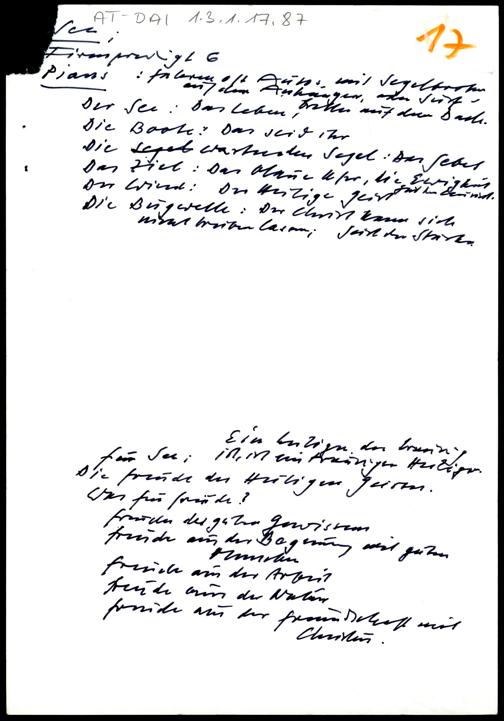 AT-DAI 1.3.1.17.87
17
See;
Firmpredigt 6
Pians : fahren oft Autos mit Segelbooten
auf dem Anhänger, oder Surf-
Der See: Das Leben, bretter auf dem Dach.
Die Boote: Das seid ihr
Die wartenden Segel: Das Gebet
Das Ziel: Das blaue Ufer, die Ewigkeit
Der Wind: Der Heilige Geist
Die Bugwelle: Der Christ kann sich
nicht treiben lassen; Geist der Stärke
Ein Heiliger der traurig
für See; ist, ist ein trauriger Heiliger.
Die Freude des Heiligen Geistes.
Was für Freude?
Freude des guten Gewissens
Freude aus der Begegnung mit guten
Menschen
Freude aus der Arbeit
Freude aus der Natur
Freude aus der Freundschaft mit
Christus.